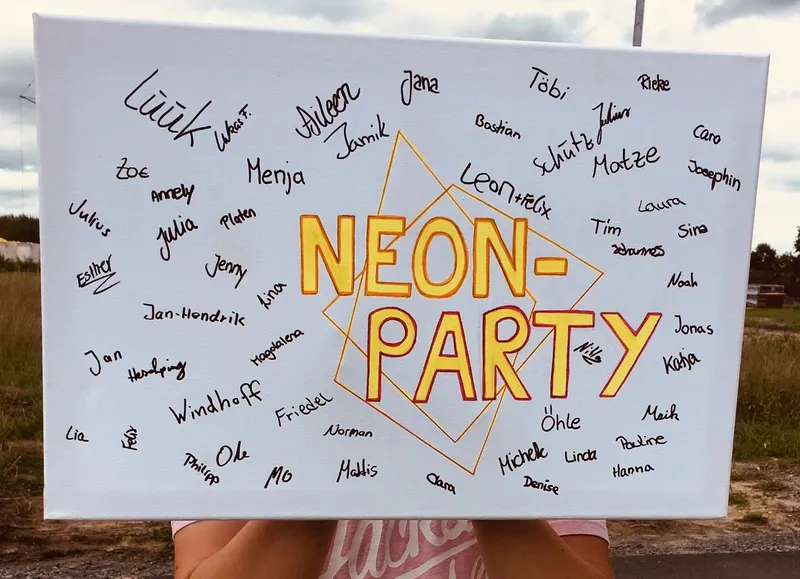 Lüük
Lukas F.
Aileen
Jannik
Jana
Töbi
Rieke
Bastian
Julius
Schütz
Matze
Caro
Josephin
Zoe
Annely
Menja
Leon + Felix
Laura
Julius
Julia
Platen
Tim
Johannes
Sina
Esther
Jenny
NEON-
Noah
Jan-Hendrik
Lina
PARTY
Nils
Jonas
Katja
Jan
Magdalena
Windhoff
Friedel
Öhle
Maik
Lia
Felix
Norman
Pauline
Philipp
Ole
Mo
Mattis
Clara
Michelle
Linda
Denise
Hanna